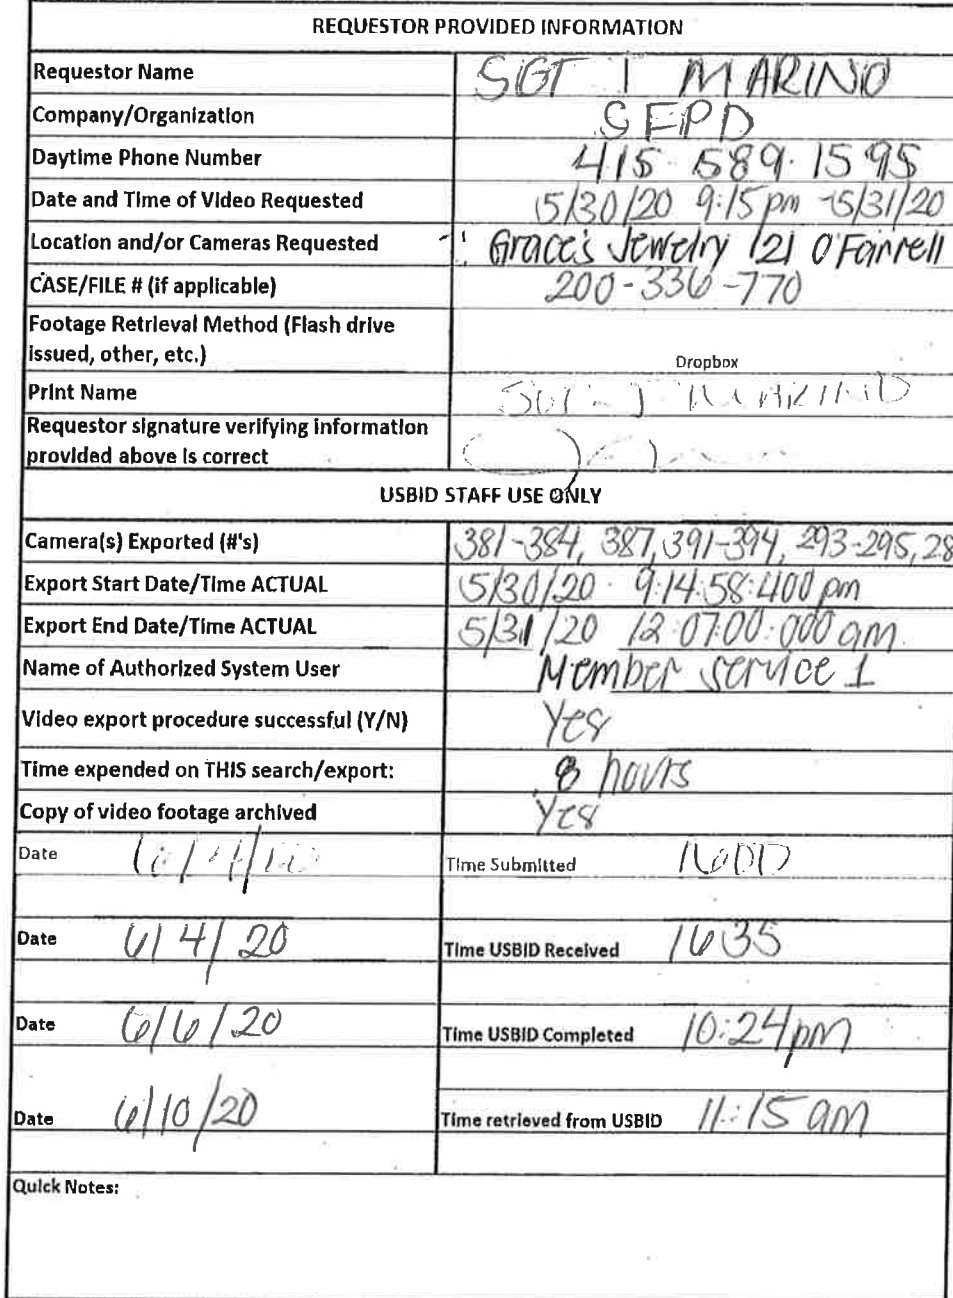 REQUESTOR PROVIDED INFORMATION
Requestor Name SGT J MARINO
Company/Organization SFPD
Daytime Phone Number 415 589.1595
Date and Time of Video Requested 5/30/20 9:15 pm -5/31/20
Location and/or Cameras Requested Grace's Jewelry 121 O'Farrell
CASE/FILE # (if applicable) 200-336-770
Footage Retrieval Method (Flash drive
issued, other, etc.) Dropbox
Print Name SGT J MARINO
Requestor signature verifying information
provided above is correct
USBID STAFF USE ONLY
Camera(s) Exported (#'s) 381-384, 387, 391-394, 293-295, 28
Export Start Date/Time ACTUAL 5/30/20 9:14:58:400 pm
Export End Date/Time ACTUAL 5/31/20 12:07:00:000 am
Name of Authorized System User Member service 1
Video export procedure successful (Y/N) Yes
Time expended on THIS search/export: 8 hours
Copy of video footage archived Yes
Date 6/4/20 Time Submitted 1600
Date 6/4/20 Time USBID Received 1635
Date 6/6/20 Time USBID Completed 10:24pm
Date 6/10/20 Time retrieved from USBID 11:15 am
Quick Notes: